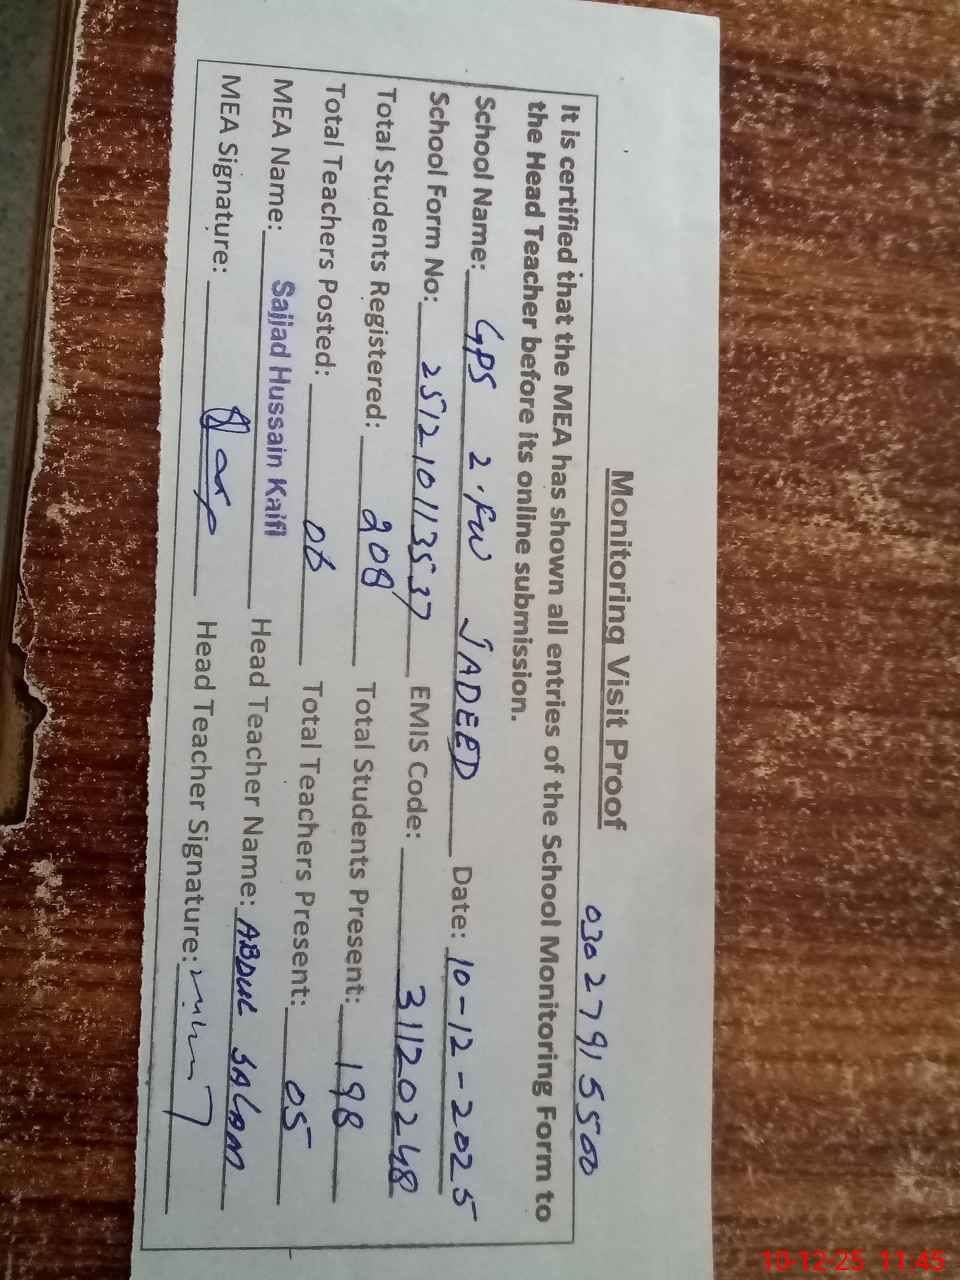 Monitoring Visit Proof
03027915500
It is certified that the MEA has shown all entries of the School Monitoring Form to
the Head Teacher before its online submission.
School Name: GPS 2.FW JADEED Date: 10-12-2025
School Form No: 251210113537 EMIS Code: 31120248
Total Students Registered: 208 Total Students Present: 198
Total Teachers Posted: 06 Total Teachers Present: 05
MEA Name: Sajjad Hussain Kaifi Head Teacher Name: ABDUL SALAM
MEA Signature: Head Teacher Signature:
10-12-25 11:45